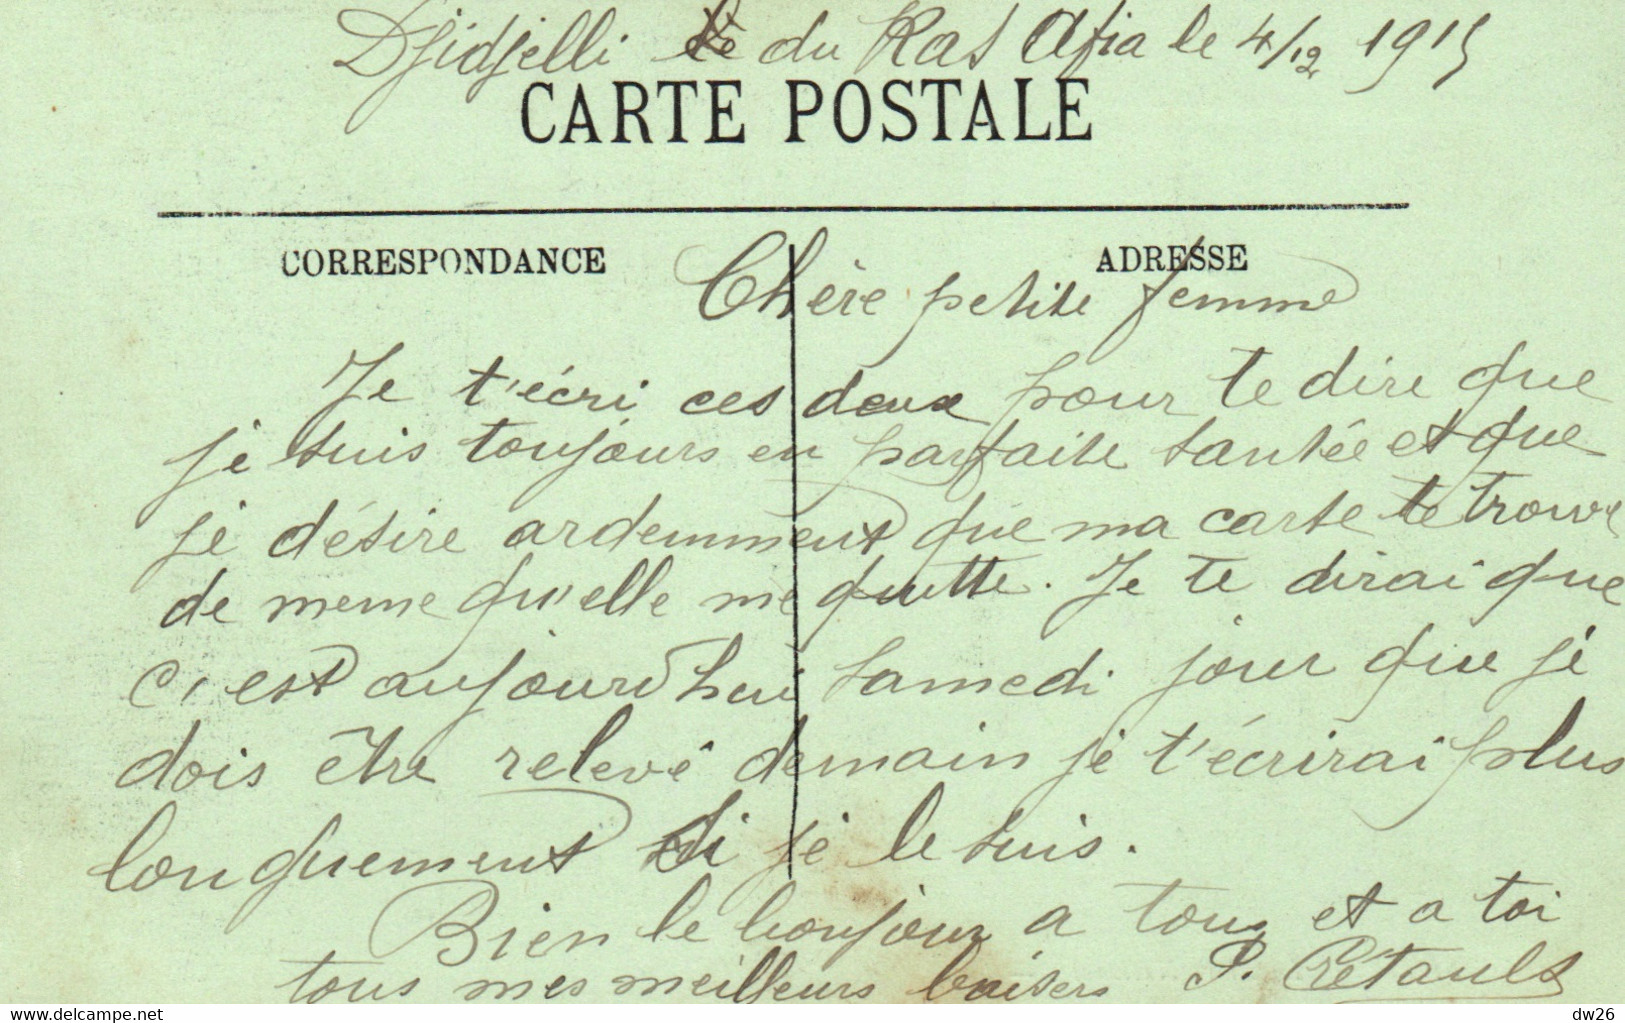 Djidjelli le du Ras Afia le 4/12 1915
CARTE POSTALE
CORRESPONDANCE
ADRESSE
Chère petite femme
Je t'écri ces deux pour te dire que
je suis toujours en parfaite santée et que
je désire ardemment que ma carte te trouve
de meme qu'elle me quitte. Je te dirai que
c'est aujourd'hui samedi jour que je
dois être relevé demain je t'écrirai plus
longuement si je le suis.
Bien le bonjour a tous et a toi
tous mes meilleurs baisers P.
www.delcampe.net
dw26